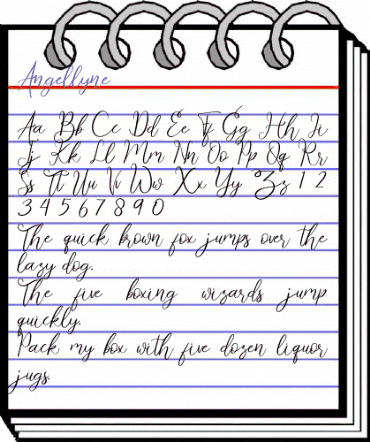 Angellyne
Aa Bb Cc Dd Ee Ff Gg Hh Ii
Jj Kk Ll Mm Nn Oo Pp Qq Rr
Ss Tt Uu Vv Ww Xx Yy Zz 1 2
3 4 5 6 7 8 9 0
The quick brown fox jumps over the
lazy dog.
The five boxing wizards jump
quickly.
Pack my box with five dozen liquor
jugs.